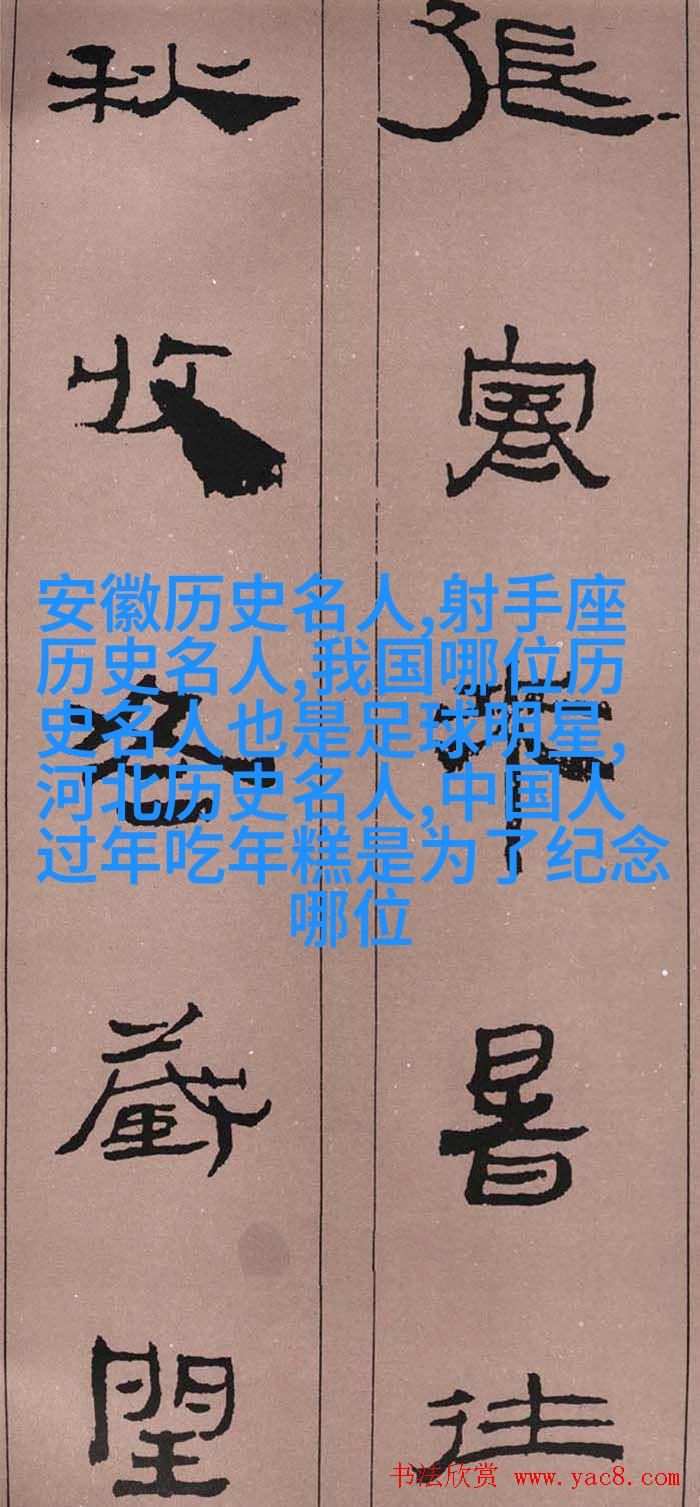 張寒來暑往
秋收冬藏閏
安徽历史名人,射手座
历史名人,我国哪位历
史名人也是足球明星,
河北历史名人,中国人
过年吃年糕是为了纪念
哪位
书法欣赏 www.yac8.com